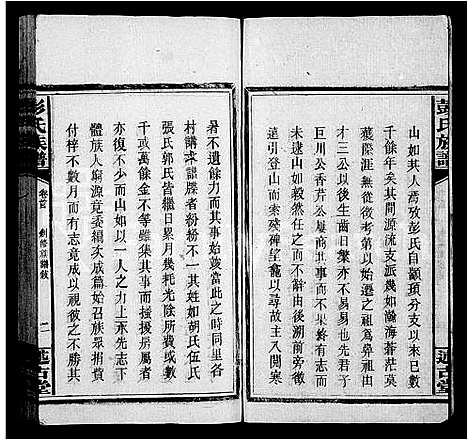 彭氏族譜
述古堂
山如其人焉攷彭氏自顓頊分支以來已
千餘年矣其間源流支派幾如瀚海蒼茫莫
獲際涯無從考究第以始遷之祖爲鼻祖由
才三公以後生齒日繁亦不易易也幸而
巨川公香芹公磨商其事而不果行焉
未逮山如前輩有志由後湖前旁徵
遠引登山而索殘碑望龕以尋故主入閒寒
暑不遺餘力而其事始該當此之時同里各
村講求譜牒者粉粉不一其姓如胡氏伍氏
張氏郭氏皆繼日累月幾耗光陰所費或數
千或萬餘金不等雖集其事而搔擾房屬者
亦復不少而山如以一力之上承先志下
體族人窮源竟委編次成篇始召族眾捐貲
付梓不數月而有志竟成以視彼之不勝其
彭氏族譜
卷首
創修族譜敘
二
述古堂